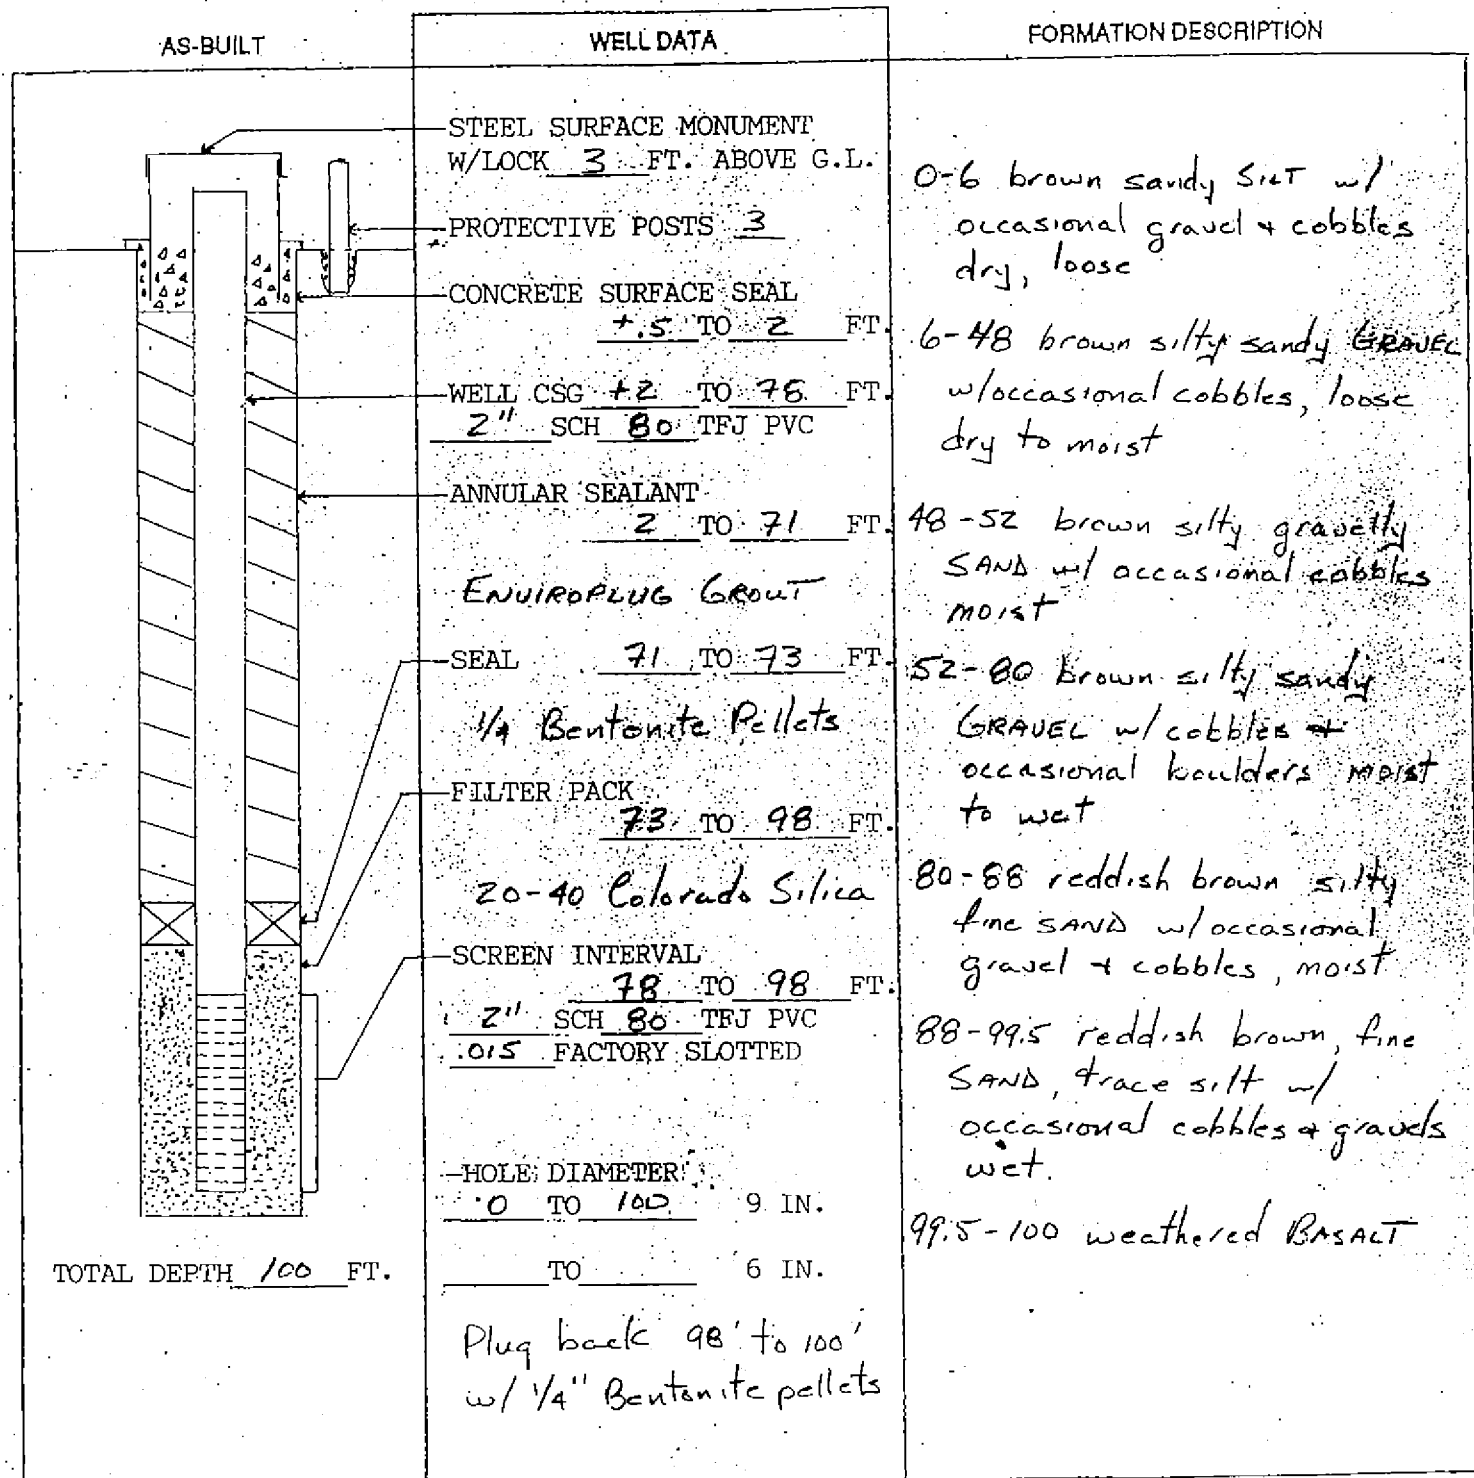 AS-BUILT
WELL DATA
FORMATION DESCRIPTION
STEEL SURFACE MONUMENT
W/LOCK 3 FT. ABOVE G.L.
PROTECTIVE POSTS 3
CONCRETE SURFACE SEAL
+.5 TO 2 FT.
WELL CSG +2 TO 78 FT.
2" SCH 80 TFJ PVC
ANNULAR SEALANT
2 TO 71 FT.
ENVIROPLUG GROUT
SEAL 71 TO 73 FT.
1/4 Bentonite Pellets
FILTER PACK
73 TO 98 FT.
20-40 Colorado Silica
SCREEN INTERVAL
78 TO 98 FT.
2" SCH 80 TFJ PVC
.015 FACTORY SLOTTED
HOLE DIAMETER
0 TO 100 9 IN.
TO 6 IN.
Plug back 98' to 100'
w/ 1/4" Bentonite pellets
0-6 brown sandy SILT w/
occasional gravel + cobbles
dry, loose
6-48 brown silty sandy GRAVEL
w/occasional cobbles, loose
dry to moist
48-52 brown silty gravelly
SAND w/ occasional cobbles
moist
52-80 brown silty sandy
GRAVEL w/ cobbles +
occasional boulders moist
to wet
80-88 reddish brown silty
fine SAND w/ occasional
gravel + cobbles, moist
88-99.5 reddish brown, fine
SAND, trace silt w/
occasional cobbles + gravels
wet.
99.5-100 weathered BASALT
TOTAL DEPTH 100 FT.